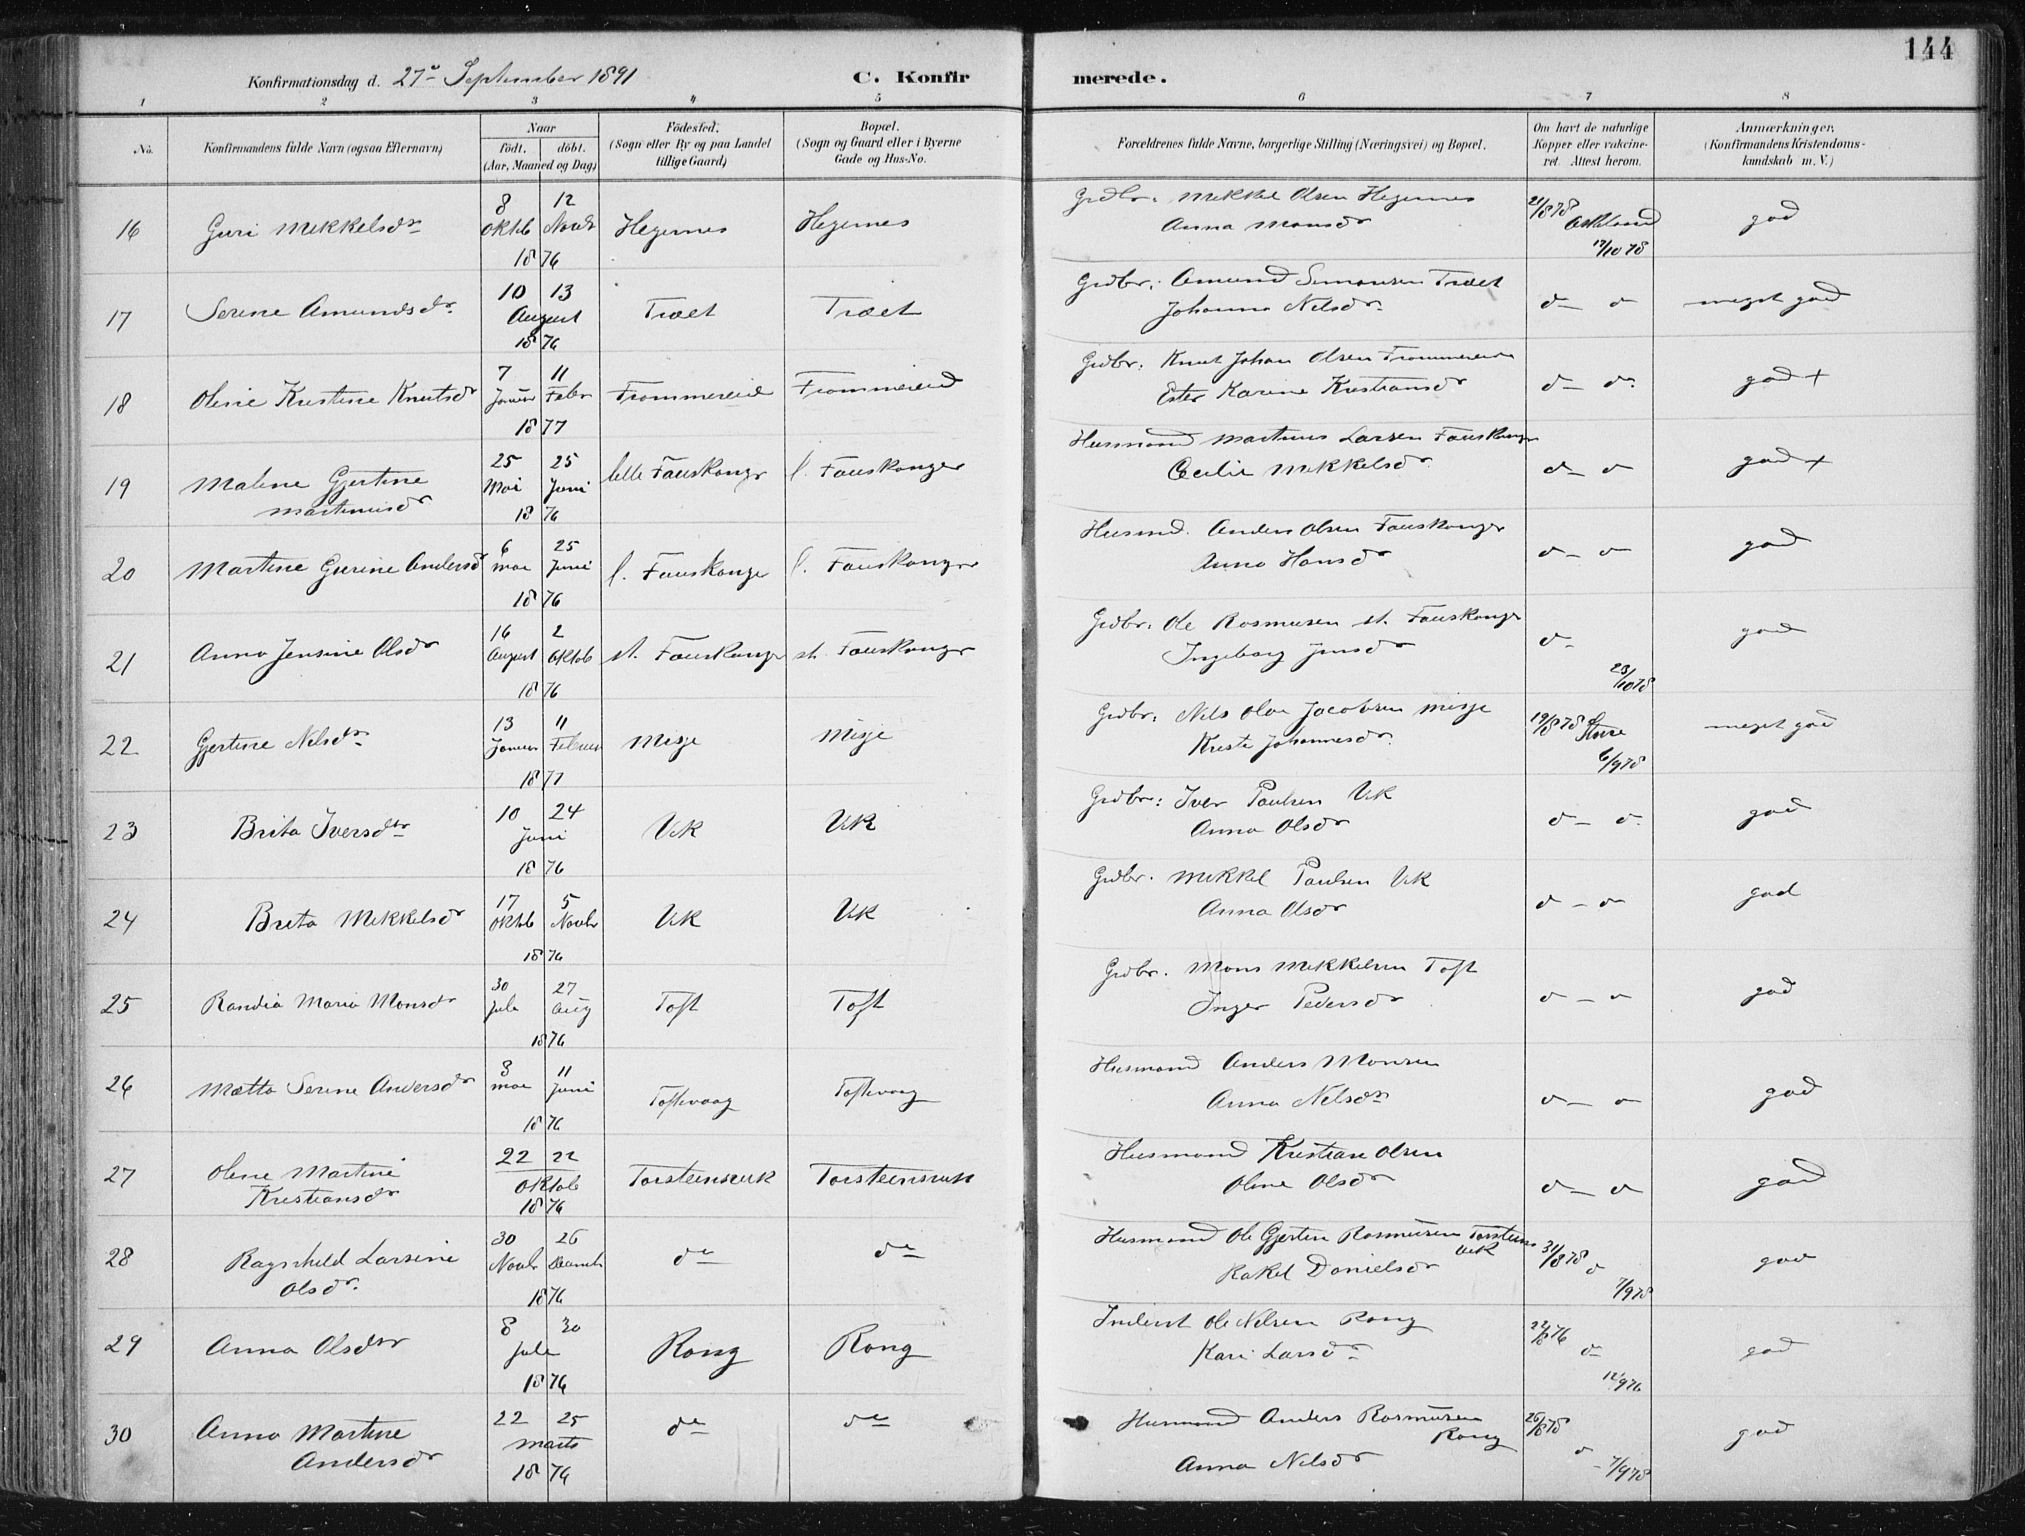 144
Konfirmationsdag d. 27de September 1891 C. Konfirmerede.
1 2 3 4 5 6 7 8
No. Konfirmandens fulde Navn (ogsaa Efternavn) Naar födt. döbt. (Aar, Maaned og Dag) Födested. (Sogn eller By og paa Landet tillige Gaard) Bopæl. (Sogn og Gaard eller i Byerne Gade og Hus-No. Forældrenes fulde Navne, borgerlige Stilling (Næringsvei) og Bopæl. Om havt de naturlige Kopper eller vakcineret. Attest herom. Anmærkninger, (Konfirmandens Kristendomskundskab m. V.)
16 Guri Mikkelsdr 8 Oktob 12 Novbr 1876 Hegernes Hegernes Grdbr: Mikkel Olsen Hegernes Anna Monsdr 21/8 78 Askeland 17/10 78 god
17 Serine Amundsdr 10 13 August 1876 Træet Træet Grdbr: Amund Simonsen Træet Johanna Nilsdr d— o meget god
18 Oline Kristine Knutsdr 7 Januar 11 Febr 1877 Frommereid Frommereid Grdbr: Knut Johan Olsen Frommereid Ester Karine Kristiansdr d— o god +
19 Maline Gjertine Martinusdr 25 Mai 25 Juni 1876 lille Fauskanger l. Fauskanger Husmand Martinus Larsen Fauskanger Cecilie Mikkelsdr d— o god +
20 Martine Gurine Andersdr 6 Mai 25 Juni 1876 l. Fauskange l. Fauskanger Husmd. Anders Olsen Fauskanger Anna Hansdr d— o god
21 Anna Jensine Olsdr 16 August 2 Oktob 1876 st. Fauskanger st. Fauskanger Grdbr: Ole Rasmusen st. Fauskange Ingeborg Jensdr d— 23/10 78 god
22 Gjertine Nilsdr 13 Januar 11 Februar 1877 Misje Misje Grdbr: Nils Olai Jacobsen Misje Kristi Johannesdr. 19/8 78 Sture 6/9 78 meget god
23 Brita Iversdtr 10 24 Juni 1876 Vik Vik Grdbr: Iver Paulsen Vik Anna Olsdr d— o god
24 Brita Mikkelsdr 17 Oktob 5 Novbr 1876 Vik Vik Grdbr. Mikkel Paulsen Vik Anna Olsdr d— o god
25 Randia Maria Monsdr 30 Juli 27 Aug 1876 Toft Toft Grdbr. Mons Mikkelsen Toft Inger Pedersdr d— o god
26 Mætta Serine Andersdr 3 Mai 11 Juni 1876 Toftevaag Toftevaag Husmand Anders Monsen Anna Nilsdr d— o god
27 Oline Martine Kristiansdr 22 22 Oktob 1876 Torsteinsvik Torsteinsvik Husmand Kristian Olsen Oline Olsdr d— o god
28 Ragnhild Larsine Olsdr. 30 Novbr 26 Decemb 1876 do do Husmand Ole Gjertin Rasmusen Torsteinsvik Rakel Danielsdr 31/8 78 d 7/9 78 god
29 Anna Olsdtr 8 30 Juli 1876 Rong Rong Inderst Ole Nilsen Rong Kari Larsdr 22/8 76 d 12/9 76 god
30 Anna Martine Andersdr 22 25 Marts 1876 do do Husmand Anders Rasmusen Rong Anna Nilsdr 26/8 78 d 7/9 78 god